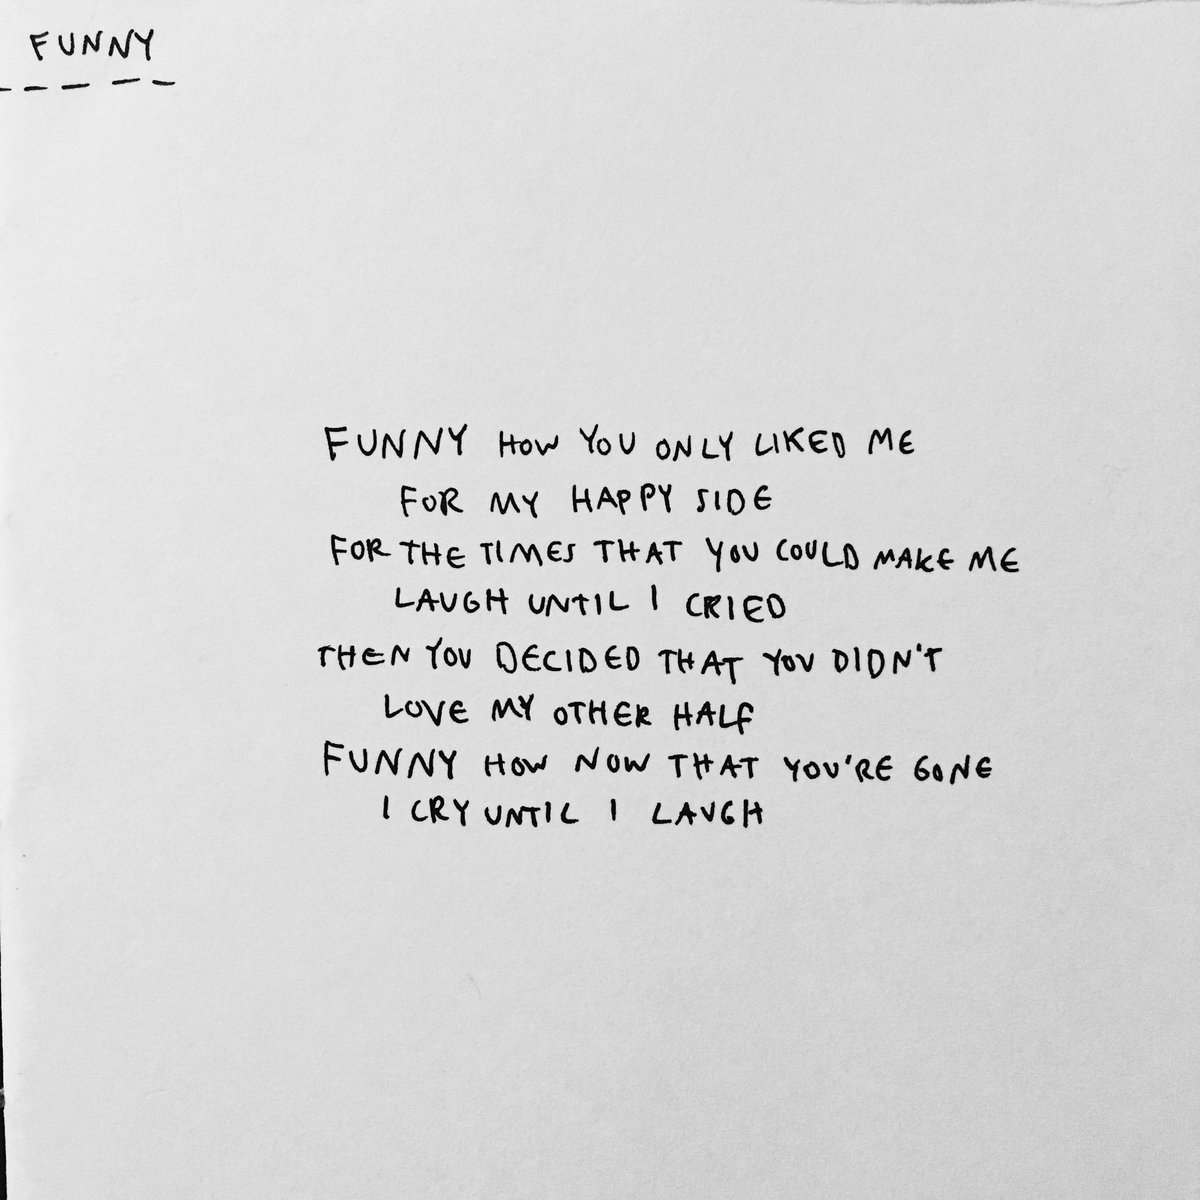 FUNNY
FUNNY HOW YOU ONLY LIKED ME
FOR MY HAPPY SIDE
FOR THE TIMES THAT YOU COULD MAKE ME
LAUGH UNTIL I CRIED
THEN YOU DECIDED THAT YOU DIDN'T
LOVE MY OTHER HALF
FUNNY HOW NOW THAT YOU'RE GONE
I CRY UNTIL I LAUGH